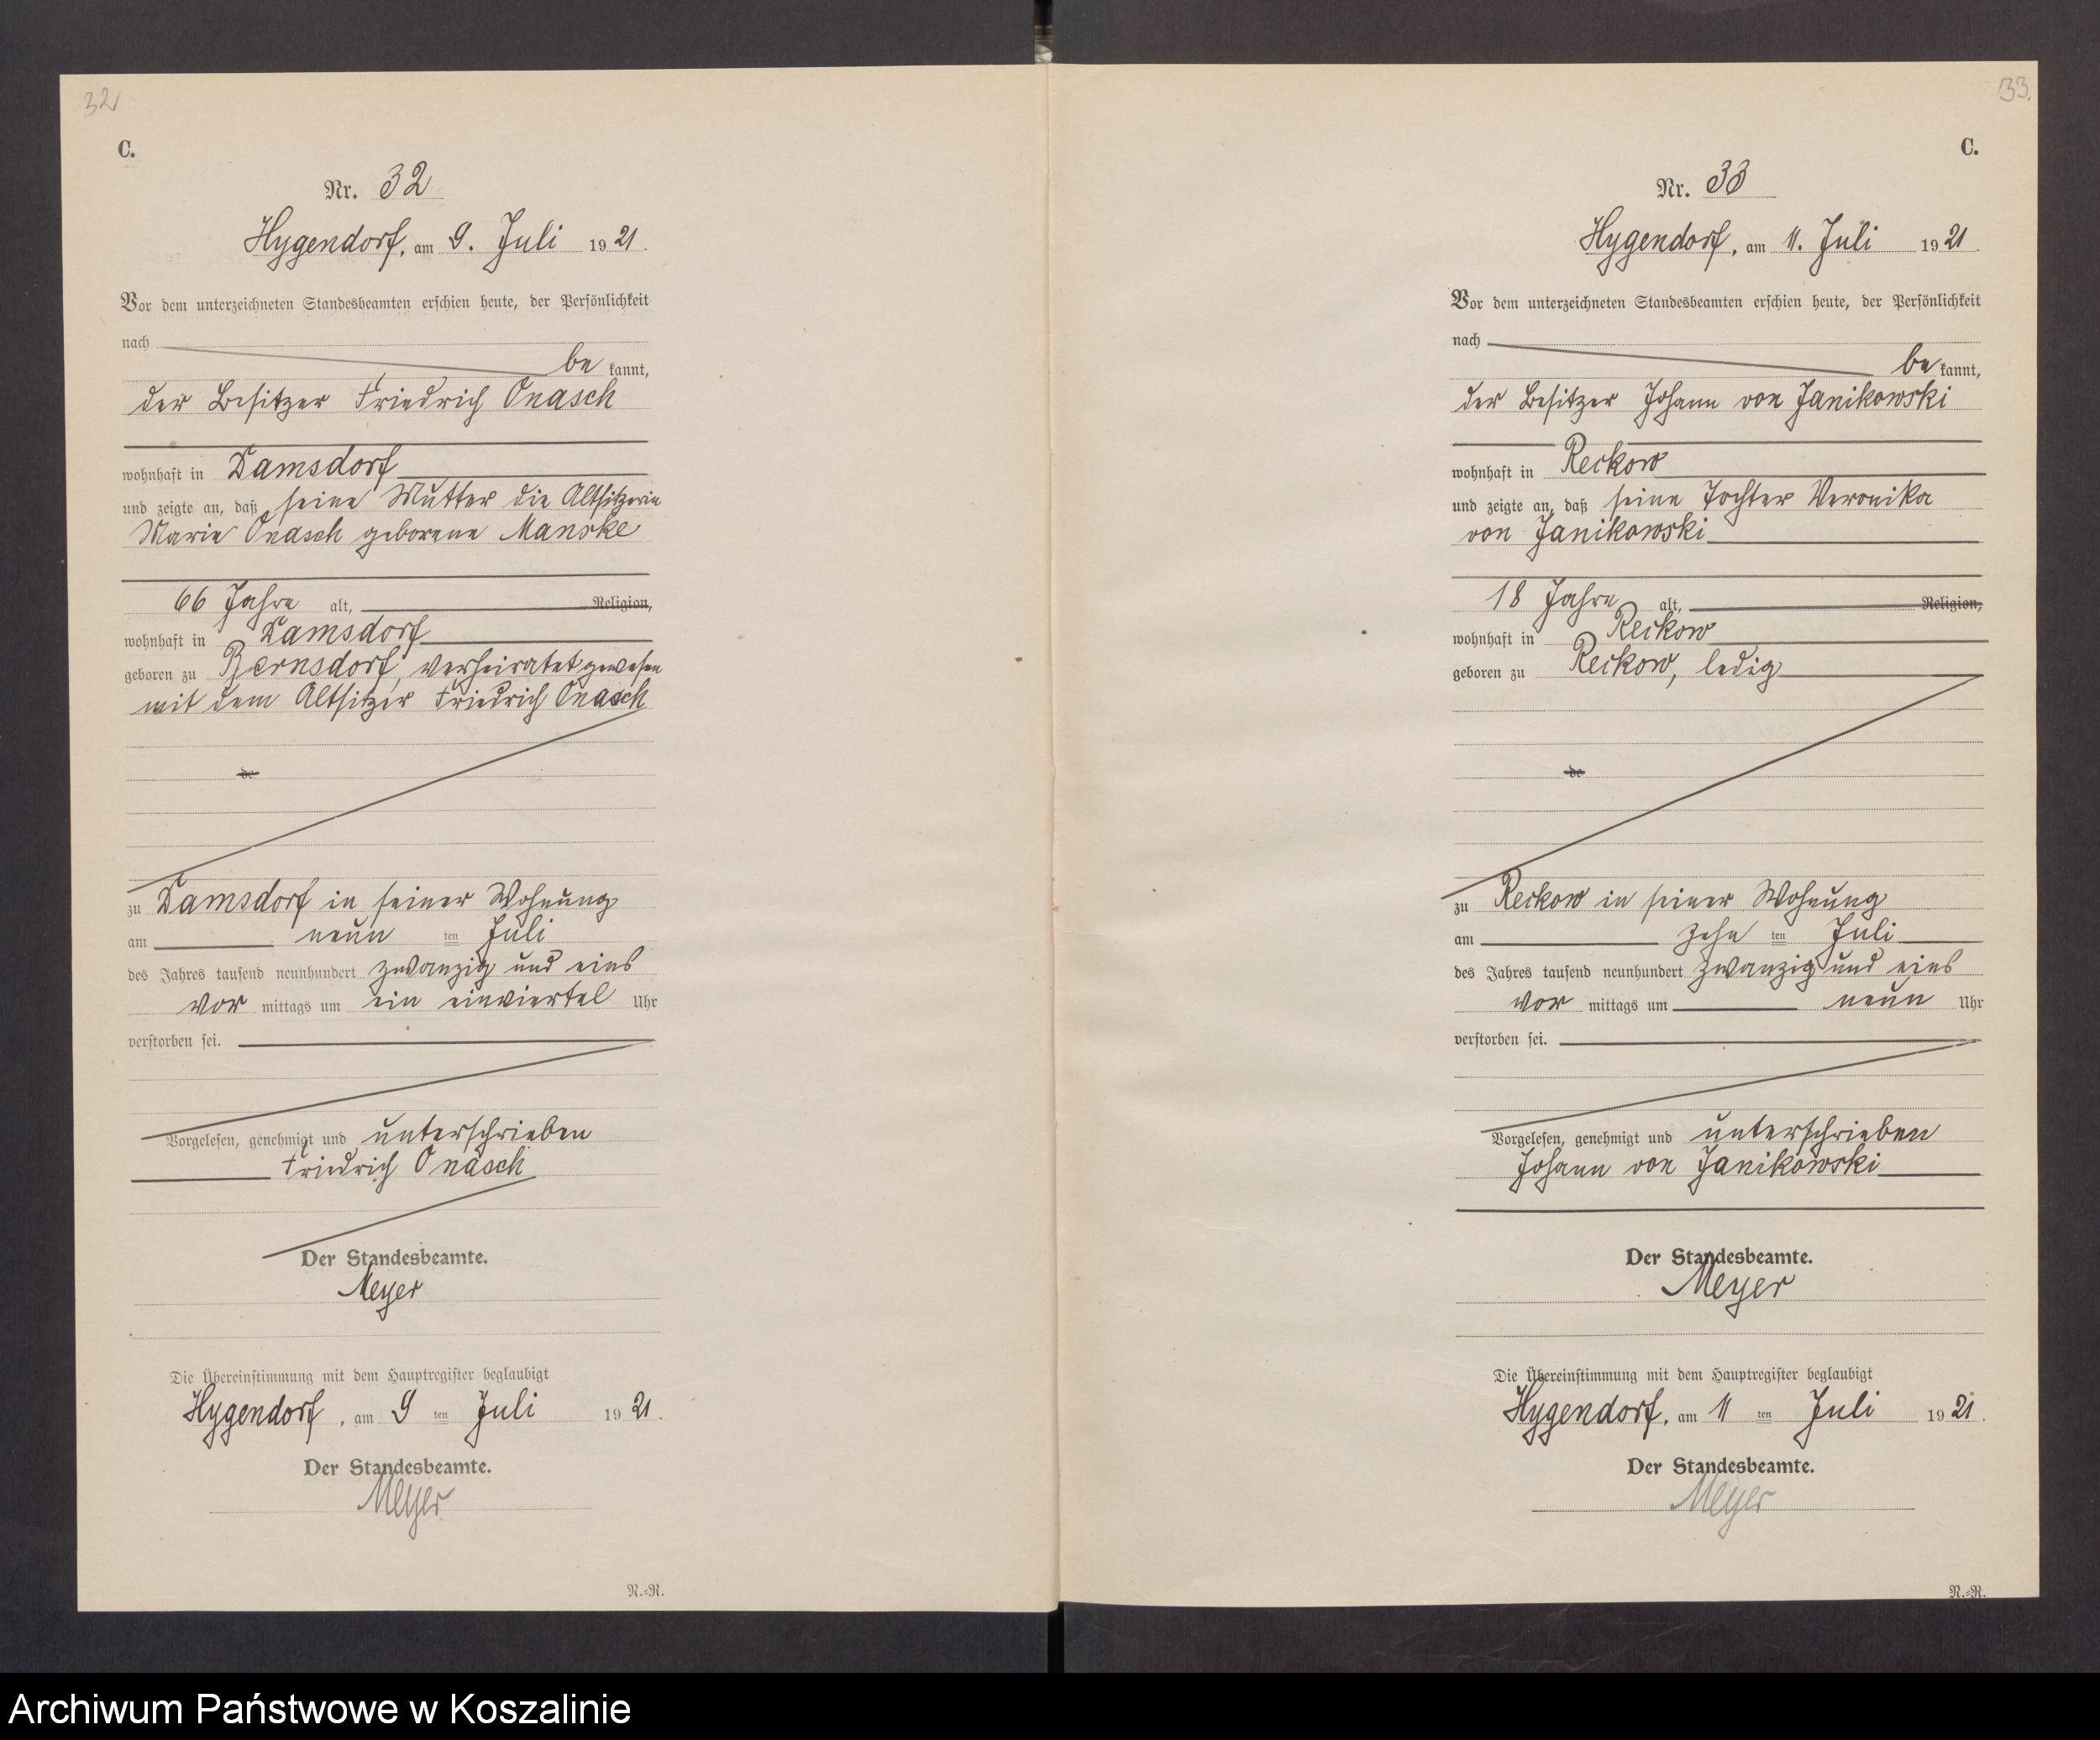 32
C.
Nr. 32
Hygendorf, am 9. Juli 1921.
Vor dem unterzeichneten Standesbeamten erschien heute, der Persönlichkeit
nach
be kannt,
der Besitzer Friedrich Onasch
wohnhaft in Damsdorf
und zeigte an, daß seine Mutter die Altsitzerin
Marie Onasch geborene Manske
66 Jahre alt, Religion,
wohnhaft in Damsdorf
geboren zu Bernsdorf, verheiratet gewesen
mit dem Altsitzer Friedrich Onasch
de
zu Damsdorf in seiner Wohnung
am neun ten Juli
des Jahres tausend neunhundert zwanzig und eins
vor mittags um ein einviertel Uhr
verstorben sei.
Vorgelesen, genehmigt und unterschrieben
Friedrich Onasch
Der Standesbeamte.
Meyer
Die Übereinstimmung mit dem Hauptregister beglaubigt
Hygendorf, am 9 ten Juli 1921.
Der Standesbeamte.
Meyer
N.=R.
33.
C.
Nr. 33
Hygendorf, am 11. Juli 1921.
Vor dem unterzeichneten Standesbeamten erschien heute, der Persönlichkeit
nach
be kannt,
der Besitzer Johann von Janikowski
wohnhaft in Reckow
und zeigte an, daß seine Tochter Veronika
von Janikowski
18 Jahre alt, Religion,
wohnhaft in Reckow
geboren zu Reckow, ledig
de
zu Reckow in seiner Wohnung
am zehn ten Juli
des Jahres tausend neunhundert zwanzig und eins
vor mittags um neun Uhr
verstorben sei.
Vorgelesen, genehmigt und unterschrieben
Johann von Janikowski
Der Standesbeamte.
Meyer
Die Übereinstimmung mit dem Hauptregister beglaubigt
Hygendorf, am 11 ten Juli 1921.
Der Standesbeamte.
Meyer
N.=R.
Archiwum Państwowe w Koszalinie